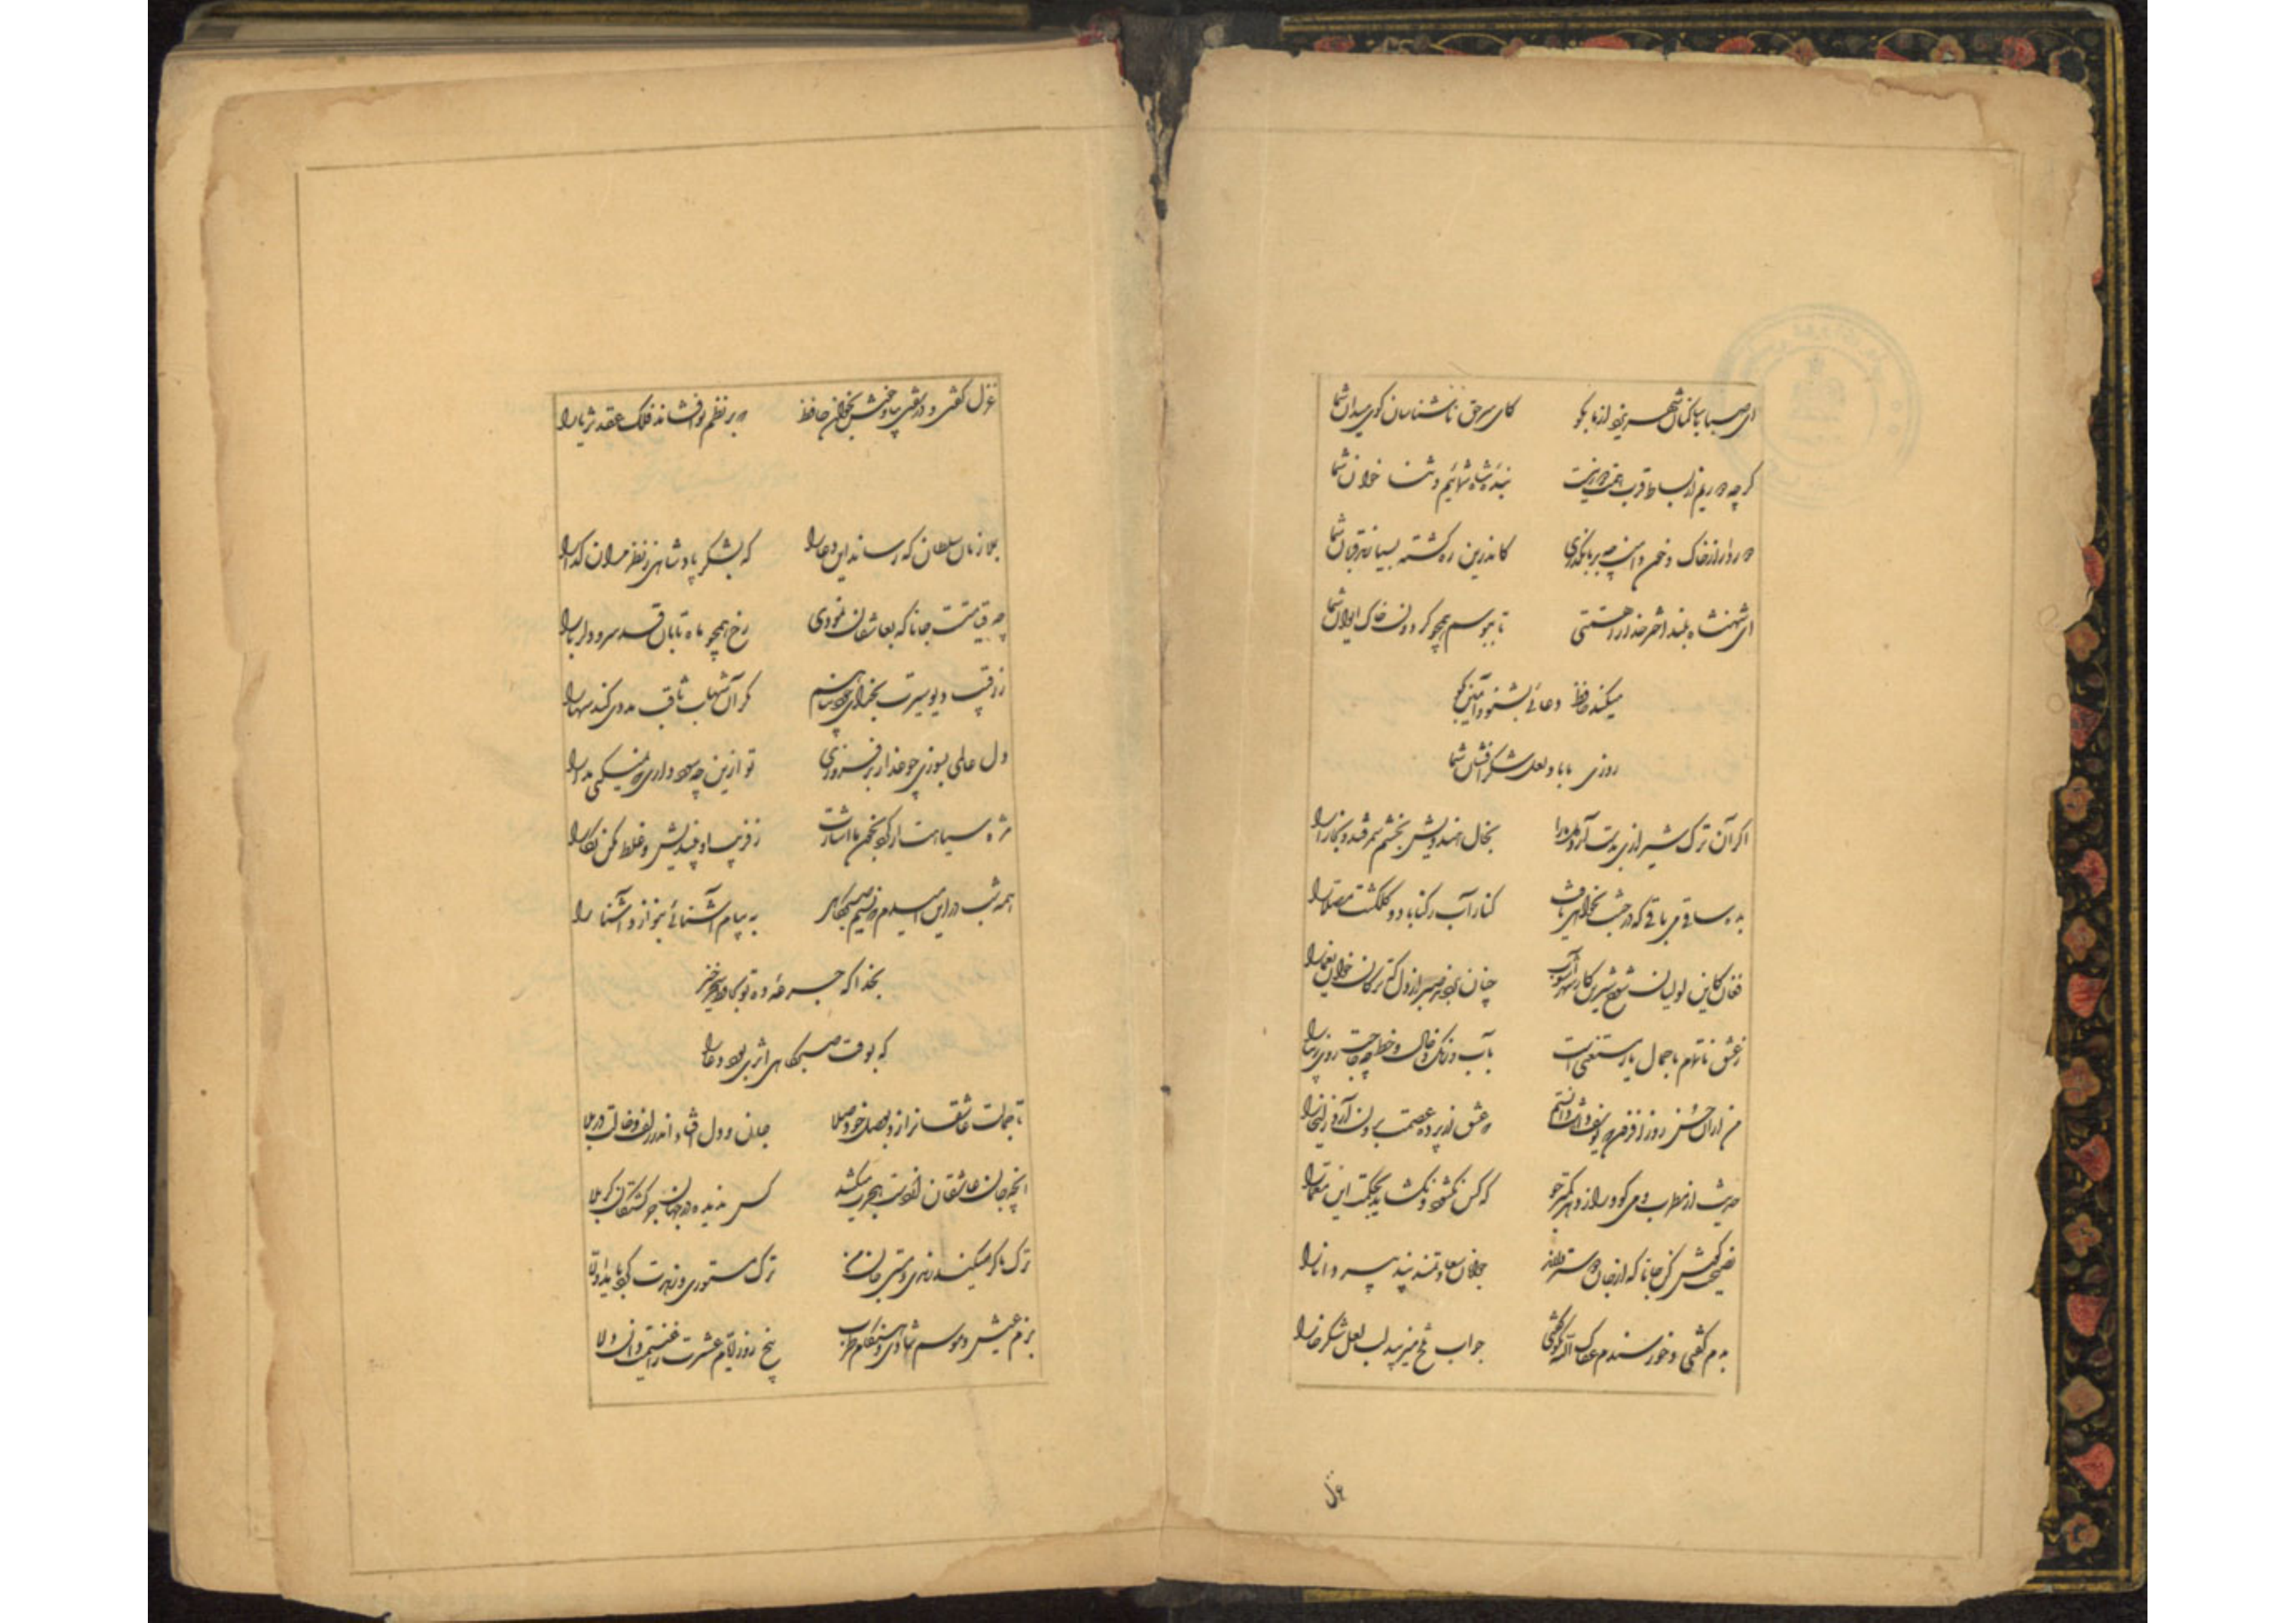 ای صبا با ساکنان شهر یزد از ما بگو کای سر حق ناشناسان کوی میدان شما
کرچه دوریم از بساط قرب همت دور نیست بندهٔ شاه شمائیم و ثنا خوان شما
دور دار از خاک و خون دامن چو بر ما بگذری کاندرین ره کشته بسیارند قربان شما
ای شهنشاه بلند اختر خدا را همتی تا ببوسم همچو کردون خاک ایوان شما
میکند حافظ دعائی بشنو و آمین بگو
روزی ما باد لعل شکر افشان شما
اکر آن ترک شیرازی بدست آرد دل ما را بخال هندویش بخشم سمرقند و بخارا را
بده ساقی می باقی که در جنت نخواهی یافت کنار آب رکناباد و کلکشت مصلا را
فغان کاین لولیان شوخ شیرین کار شهرآشوب چنان بردند صبر از دل که ترکان خوان یغما را
ز عشق ناتمام ما جمال یار مستغنی است بآب و رنک و خال و خط چه حاجت روی زیبا را
من از آن حسن روز افزون که یوسف داشت دانستم که عشق از پرده عصمت برون آرد زلیخا را
حدیث از مطرب و می کو و راز دهر کمتر جو که کس نکشود و نکشاید بحکمت این معما را
نصیحت کوش کن جانا که از جان دوستر دارند جوانان سعادتمند پند پیر دانا را
بدم کفتی و خورسندم عفاک الله نکو کفتی جواب تلخ میزیبد لب لعل شکرخا را
غزل
غزل کفتی و در سفتی بیا و خوش بخوان حافظ که بر نظم تو افشاند فلک عقد ثریا را
بملازمان سلطان که رساند این دعا را که بشکر پادشاهی ز نظر مران کدا را
چه قیامتست جانا که بعاشقان نمودی رخ همچو ماه تابان قد سرو دلربا را
ز رقیب دیو سیرت بخدای خود پناهم مکر آن شهاب ثاقب مددی کند سها را
دل عالمی بسوزی چو عذار برفروزی تو ازین چه سود داری که نمیکنی مدارا
مژه سیاهت ار کرد بخون ما اشارت ز فریب او بیندیش و غلط مکن نکارا
همه شب در این امیدم که نسیم صبحکاهی به پیام آشنائی بنوازد آشنا را
بخدا که جرعهٔ ده تو بحافظ سحرخیز
که بوقت صبحکاهی اثری بود دعا را
تا جمالت عاشقانرا زد بوصل خود صلا جان و دل افتاده اند از زلف و خالت در بلا
آنچه جان عاشقان از دست هجرت میکشد کس ندیده در جهان جز کشتکان کربلا
ترک ما کر میکند رندی و مستی جان من ترک مستوری و زهدت کرد باید اولا
بزم عیش و موسم شادی و هنکام طرب پنج روز ایام عشرت را غنیمت دان دلا